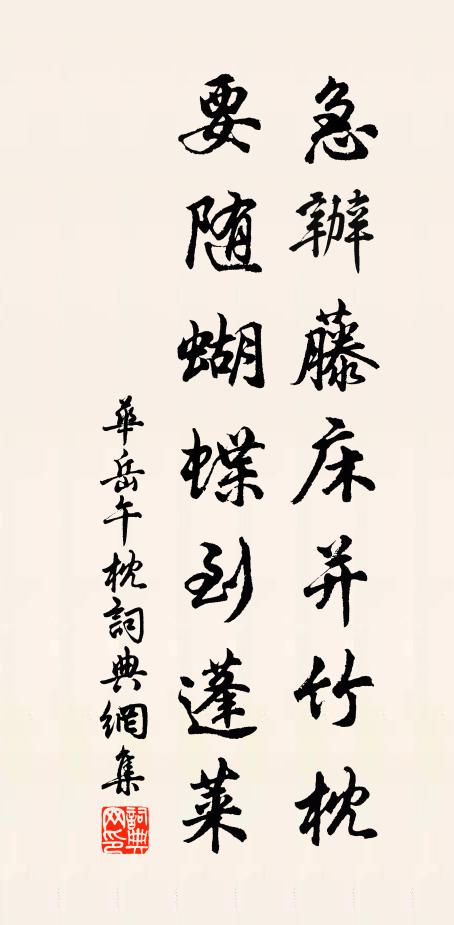 急辦藤床并竹枕
要随蝴蝶到蓬萊
華岳午枕詞典網集
詞典网印